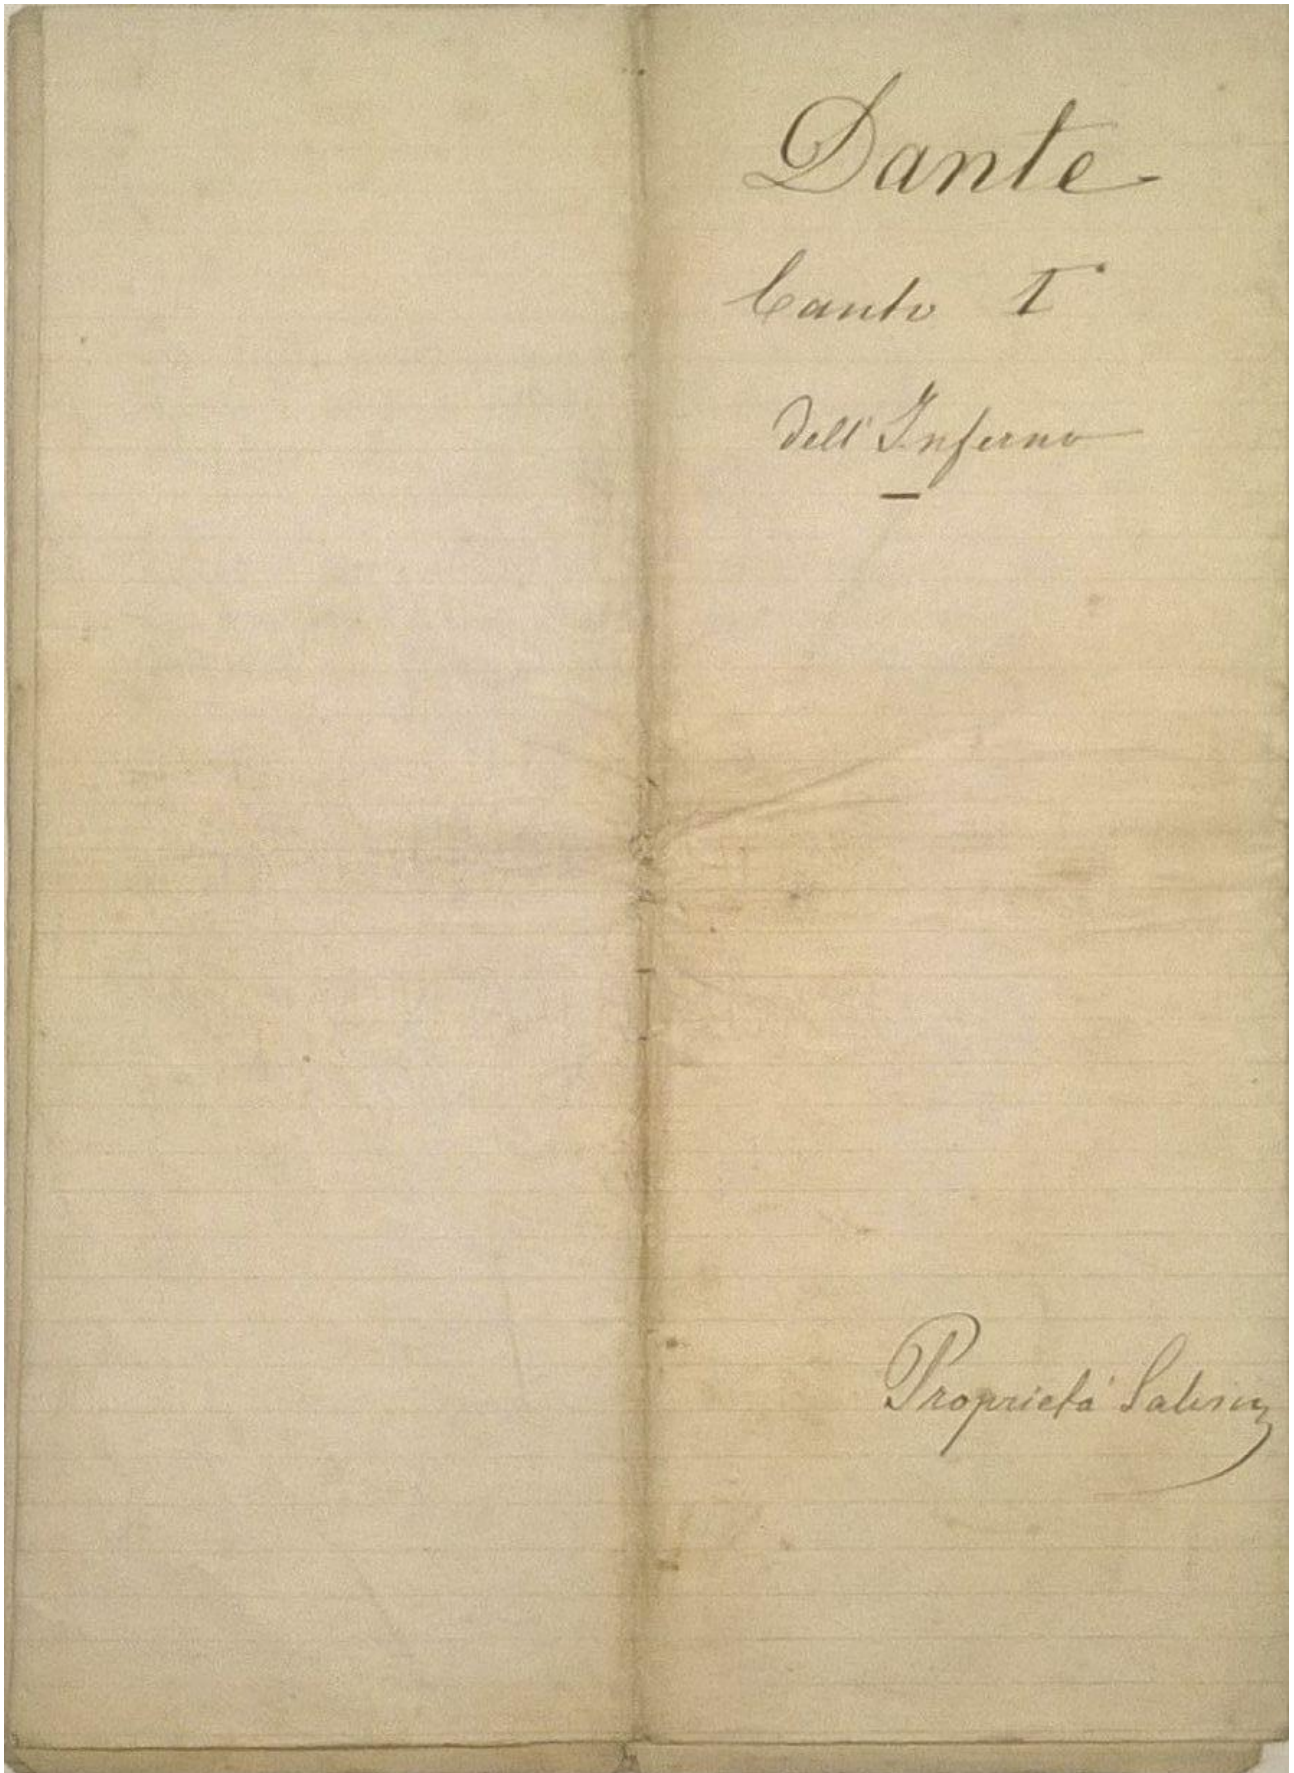 Dante
Canto I°
dell'Inferno
Proprietà